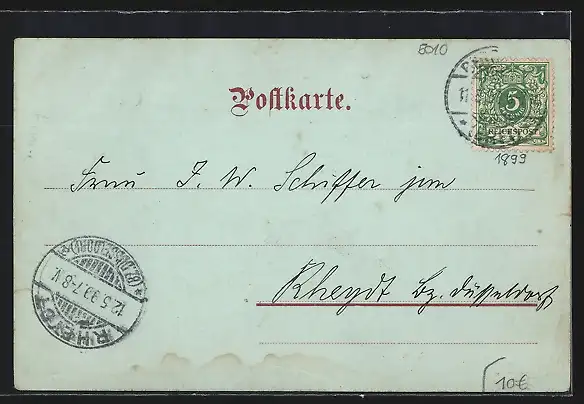 8010
Postkarte.
5
REICHSPOST
1899
Frau J. W. Schiffer jun
Rheydt Bz. Düsseldorf
RHEYDT
12.5.99.7-8.V.
(BZ.DÜSSELDORF)
10€